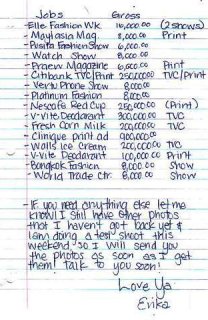 Jobs Gross
- Elle Fashion Wk. 16,000.00 (2 shows)
- Maylasia Mag. 8,000.00 Print
- Posita Fashion Show 6,000.00
- Watch Show 8,000.00
- Praew Magazine 6,500.00 Print
- Citibank TVC/Print 250,000.00 TVC/Print
- Vertu Phone Show 8,000.00
- Platinum Fashion 8,000.00
- Nescafe Red Cup 250,000.00 (Print)
- V-Vite Deodorant 300,000.00 TVC
- Fresh Corn Milk 200,000.00 TVC
- Clinique print ad 900,000.00
- Walls Ice Cream 200,000.00 TVC
- V-Vite Deodorant 100,000.00 Print
- Bangkok Fashion 8,000.00 Show
- World Trade Ctr. 8,000.00 Show
- If you need anything else let me
know! I still have other photos
that I haven't got back yet &
I am doing a test shoot this
weekend so I will send you
the photos as soon as I get
them! Talk to you soon!
Love Ya
Erika